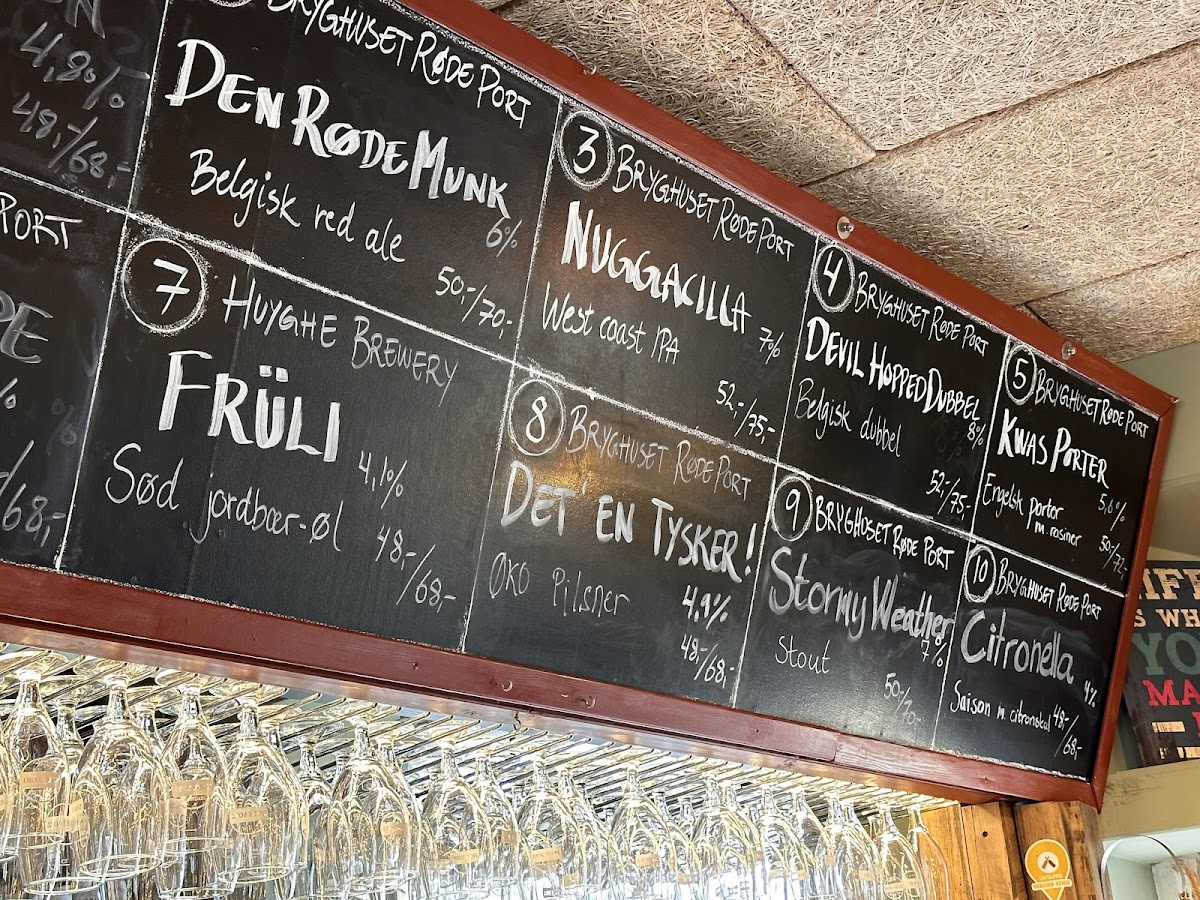 N
4,8%
48,-/68,-
BRYGHUSET RØDE PORT
DEN RØDE MUNK
6%
Belgisk red ale
50,-/70,-
3 BRYGHUSET RØDE PORT
NUGGACILLA
7%
West coast IPA
52,-/75,-
4 BRYGHUSET RØDE PORT
DEVIL HOPPED DUBBEL
8%
Belgisk dubbel
52,-/75,-
5 BRYGHUSET RØDE PORT
KWAS PORTER
5,6%
Engelsk porter
m. rosiner
50/72,-
PORT
PE
%
/68,-
7 HUYGHE BREWERY
FRÜLI
4,1%
Sød jordbær-øl
48,-/68,-
8 BRYGHUSET RØDE PORT
DET' EN TYSKER!
ØKO Pilsner
4,9%
48,-/68,-
9 BRYGHUSET RØDE PORT
Stormy Weather
7%
Stout
50,-/70,-
10 BRYGHUSET RØDE PORT
Citronella
4%
Saison m. citronskal
48,-/68,-
IFE
S WH
YO
MA